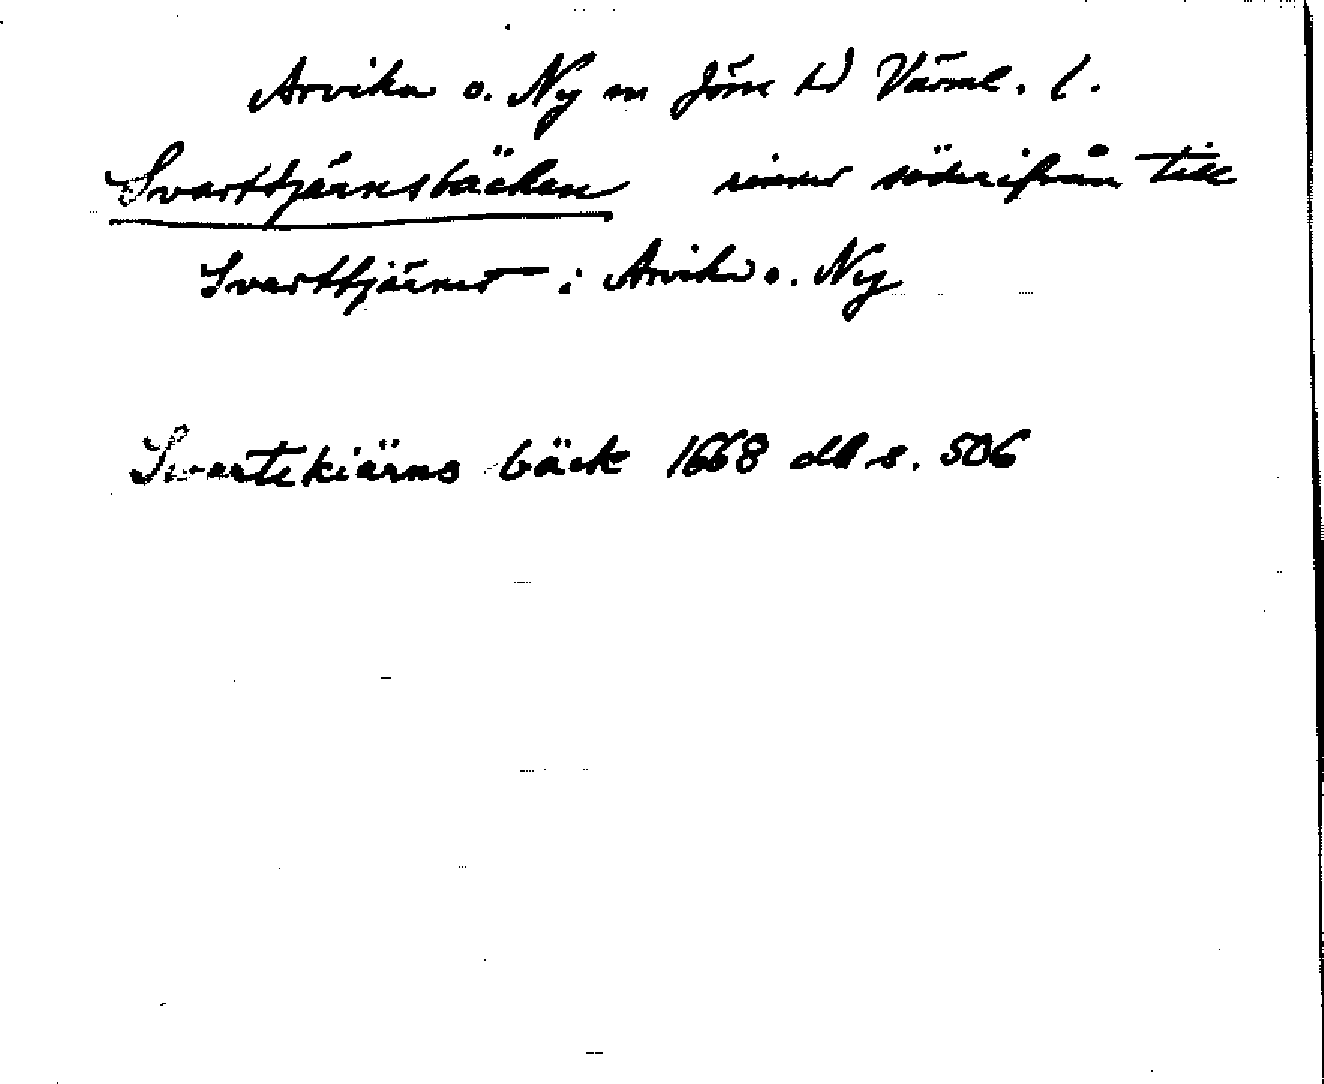 Arvika o. Ny m Jöss hd Värml. l.
Svarttjärnsbäcken rinner söderifrån till
Svarttjärnet i Arvika o. Ny
Swartekiärns bäck 1668 db s. 506